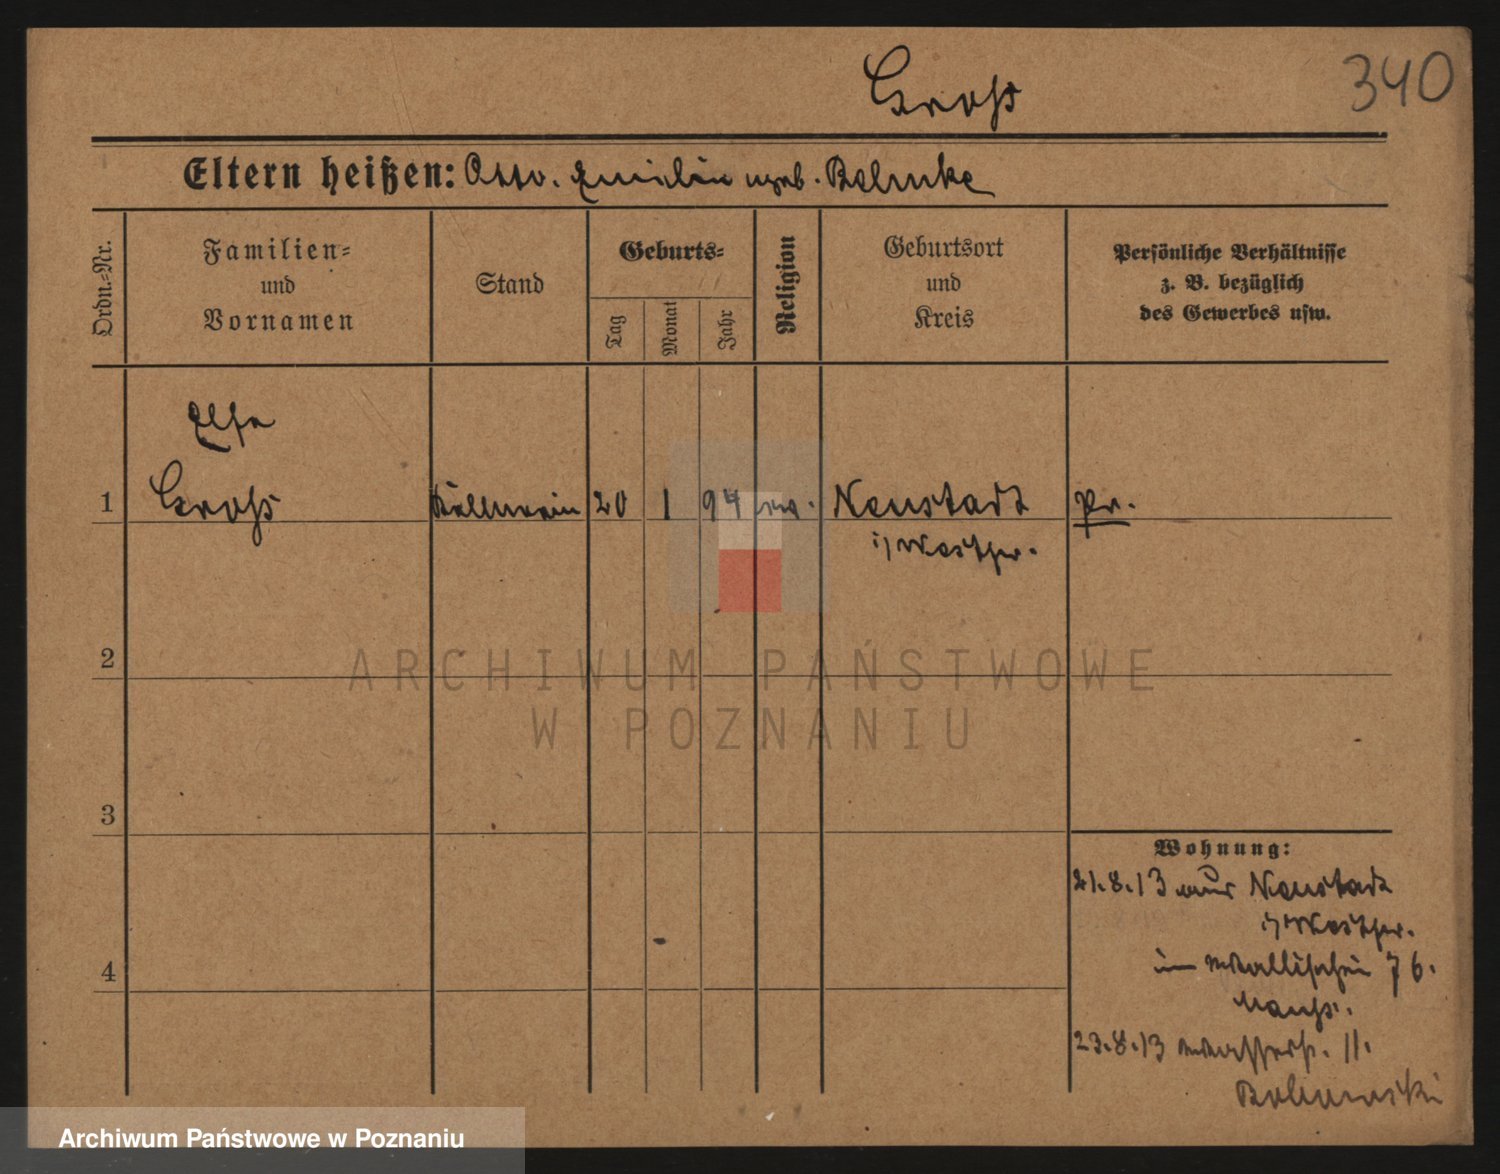 Groß
340
Eltern heißen: Otto. Emilie geb. Bohnke
Ordn.-Nr.
Familien-
und
Vornamen
Stand
Geburts-
Tag
Monat
Jahr
Religion
Geburtsort
und
Kreis
Persönliche Verhältnisse
z. B. bezüglich
des Gewerbes usw.
Elsa
1 Groß Kellnerin 20 1 94 ev. Neustadt Pr.
i/Westpr.
2
3
4
Wohnung:
21.8.13 aus Neustadt
i/Westpr.
in Wallischei 76.
23.8.13 Wasserstr. 11.
ARCHIWUM PAŃSTWOWE
W POZNANIU
Archiwum Państwowe w Poznaniu